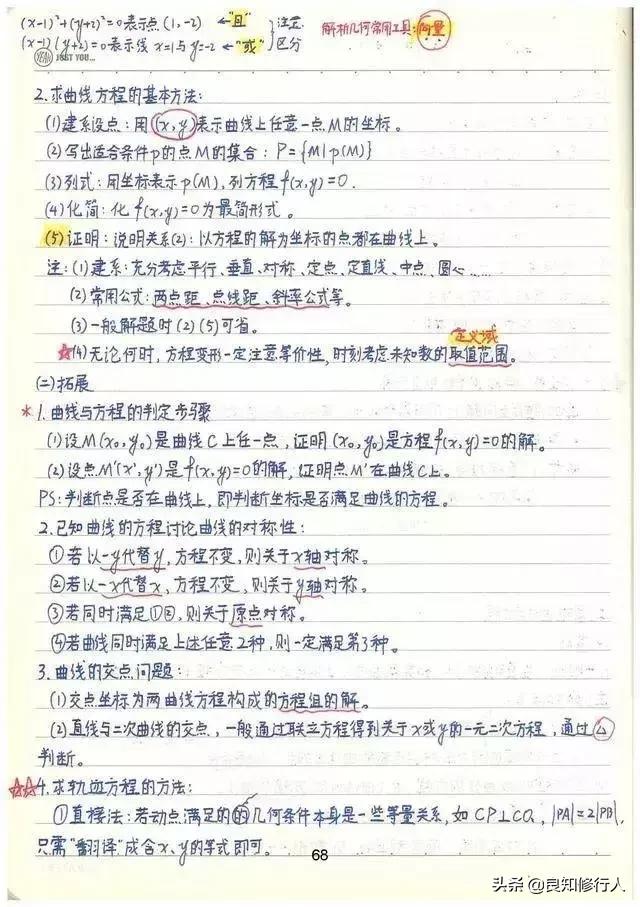 (x-1)²+(y+2)²=0表示点(1,-2) ←"且" 注意
(x-1)(y+2)=0表示线x=1与y=-2 ←"或" 区分
解析几何常用工具:向量
YEAH JUST YOU...
2.求曲线方程的基本方法:
(1)建系设点:用(x,y)表示曲线上任意一点M的坐标。
(2)写出适合条件p的点M的集合:P={M|p(M)}
(3)列式:用坐标表示p(M),列方程f(x,y)=0.
(4)化简:化f(x,y)=0为最简形式。
(5)证明:说明关系(2):以方程的解为坐标的点都在曲线上。
注:(1)建系:充分考虑平行、垂直、对称、定点、定直线、中点、圆心……
(2)常用公式:两点距、点线距、斜率公式等。
(3)一般解题时(2)(5)可省。
定义域
☆(4)无论何时,方程变形一定注意等价性,时刻考虑未知数的取值范围。
(二)拓展
*1.曲线与方程的判定步骤
(1)设M(x₀,y₀)是曲线C上任一点,证明(x₀,y₀)是方程f(x,y)=0的解。
(2)设点M'(x',y')是f(x,y)=0的解,证明点M'在曲线C上。
PS:判断点是否在曲线上,即判断坐标是否满足曲线的方程。
2.已知曲线的方程讨论曲线的对称性:
①若以-y代替y,方程不变,则关于x轴对称。
②若以-x代替x,方程不变,则关于y轴对称。
③若同时满足①②,则关于原点对称。
④若曲线同时满足上述任意2种,则一定满足第3种。
3.曲线的交点问题:
(1)交点坐标为两曲线方程构成的方程组的解。
(2)直线与二次曲线的交点,一般通过联立方程得到关于x或y的一元二次方程,通过△
判断。
☆☆4.求轨迹方程的方法:
①直接法:若动点满足的的几何条件本身是一些等量关系,如CP⊥CQ,|PA|=2|PB|,
只需"翻译"成含x、y的等式即可。
68
头条@良知修行人